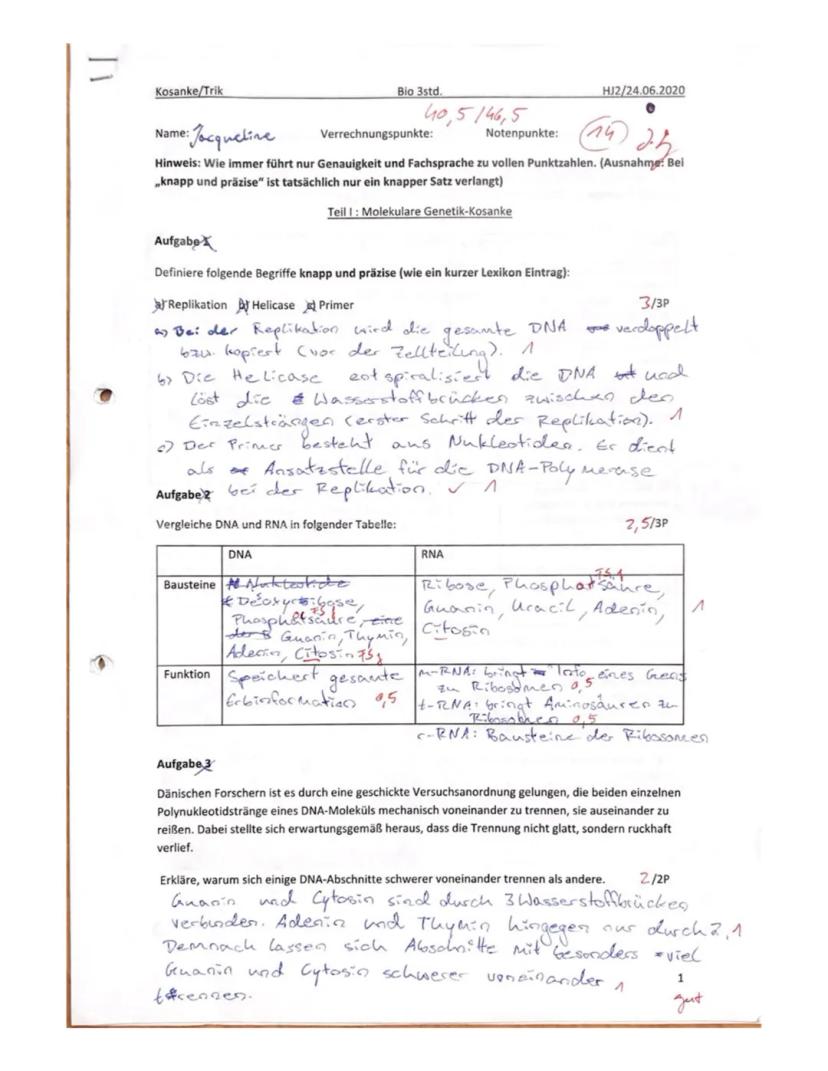 Kosanke/Trik Bio 3std. HJ2/24.06.2020
40,5/46,5
Name: Jacqueline Verrechnungspunkte: Notenpunkte: 14
Hinweis: Wie immer führt nur Genauigkeit und Fachsprache zu vollen Punktzahlen. (Ausnahme: Bei
„knapp und präzise“ ist tatsächlich nur ein knapper Satz verlangt)
Teil I : Molekulare Genetik-Kosanke
Aufgabe 1
Definiere folgende Begriffe knapp und präzise (wie ein kurzer Lexikon Eintrag):
a) Replikation b) Helicase c) Primer 3/3P
a) Bei der Replikation wird die gesamte DNA verdoppelt
bzw. kopiert (vor der Zellteilung). 1
b) Die Helicase entspiralisiert die DNA und
löst die Wasserstoffbrücken zwischen den
Einzelsträngen (erster Schritt der Replikation). 1
c) Der Primer besteht aus Nukleotiden. Er dient
als Ansatzstelle für die DNA-Polymerase
bei der Replikation. ✓ 1
Aufgabe 2
Vergleiche DNA und RNA in folgender Tabelle: 2,5/3P
DNA RNA
Bausteine
Desoxyribose,
Phosphatsäure,
Guanin, Thymin,
Adenin, Citosin FS
Ribose, Phosphatsäure, FS
Guanin, Uracil, Adenin, 1
Citosin
Funktion
Speichert gesamte
Erbinformation 0,5
m-RNA: bringt Info eines Gens
zu Ribosomen 0,5
t-RNA: bringt Aminosäuren zu
Ribosomen 0,5
r-RNA: Bausteine der Ribosomen
Aufgabe 3
Dänischen Forschern ist es durch eine geschickte Versuchsanordnung gelungen, die beiden einzelnen
Polynukleotidstränge eines DNA-Moleküls mechanisch voneinander zu trennen, sie auseinander zu
reißen. Dabei stellte sich erwartungsgemäß heraus, dass die Trennung nicht glatt, sondern ruckhaft
verlief.
Erkläre, warum sich einige DNA-Abschnitte schwerer voneinander trennen als andere. 2/2P
Guanin und Cytosin sind durch 3 Wasserstoffbrücken
verbunden. Adenin und Thymin hingegen nur durch 2, 1
Demnach lassen sich Abschnitte mit besonders viel
Guanin und Cytosin schwerer voneinander 1
trennen.
1
gut